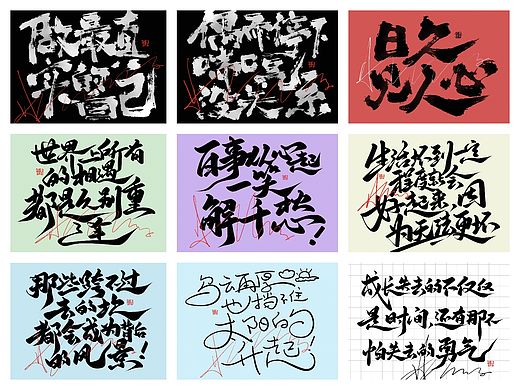 做最真
实的自己
偶而停下
味口气
没关系
日久
见人心
世界上所有
的相遇
都是久别重
逢
百事从心起
一笑
解千愁!
生活坏到一定
程度就会
好起来,因
为无法更坏
那些跨不过
去的坎
都会成为背后
的风景!
乌云再厚
也挡不住
太阳的
升起!
成长失去的不仅仅
是时间,还有那不
怕失去的勇气